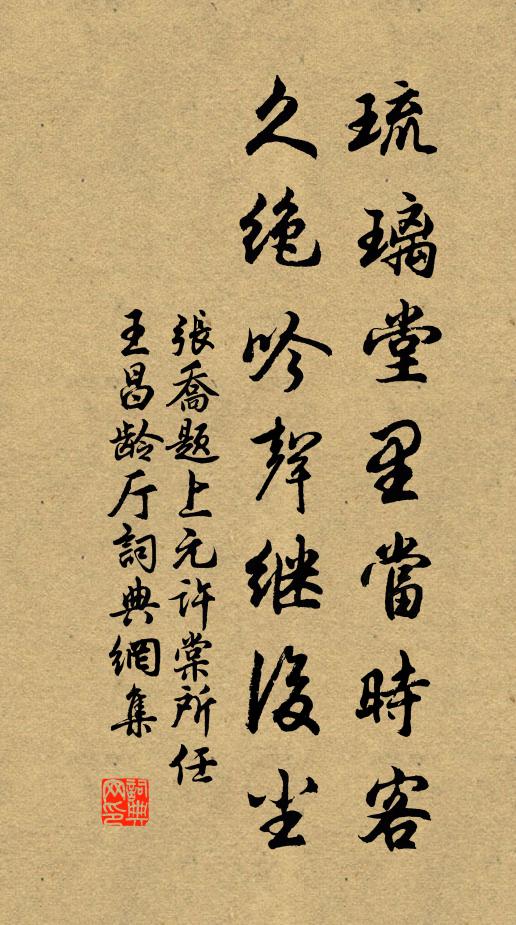 琉璃堂里當時客
久绝吟聲继後尘
張喬题上元许棠所任
王昌龄厅詞典網集
詞典网印